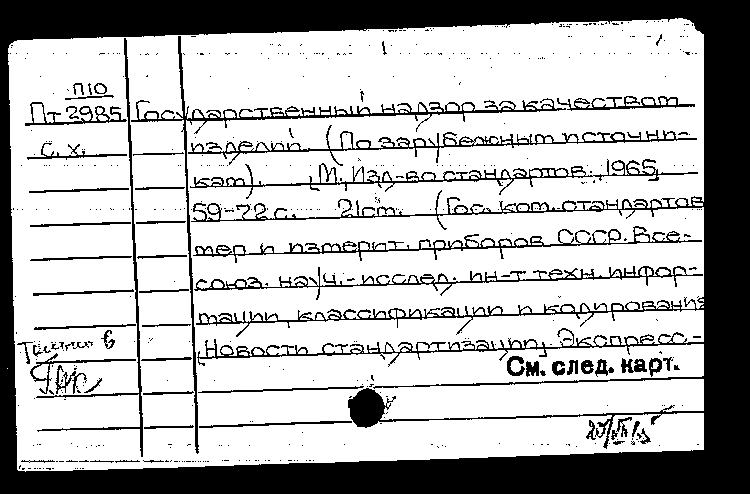 П10
Пт 2985 Государственный надзор за качеством
с.х. изделий. (По зарубежным источни-
кам). М., Изд-во стандартов, 1965.
59-72 с. 21 см. (Гос. ком. стандартов
мер и измерит. приборов СССР. Все-
союз. науч.-исслед. ин-т техн. инфор-
мации, классификации и кодирования
"Новости стандартизации". Экспресс-
См. след. карт.